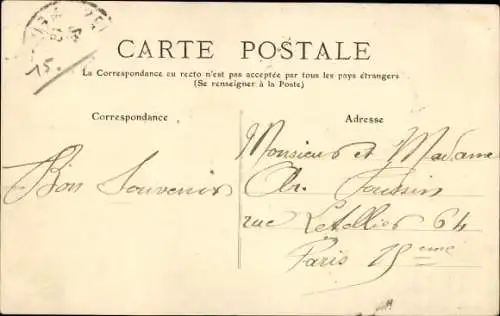 15.
CARTE POSTALE
La Correspondance au recto n'est pas acceptée par tous les pays étrangers
(Se renseigner à la Poste)
Correspondance
Adresse
Bon Souvenir
Monsieur et Madame
Ch. Toussin
rue Letellier 64
Paris 15eme